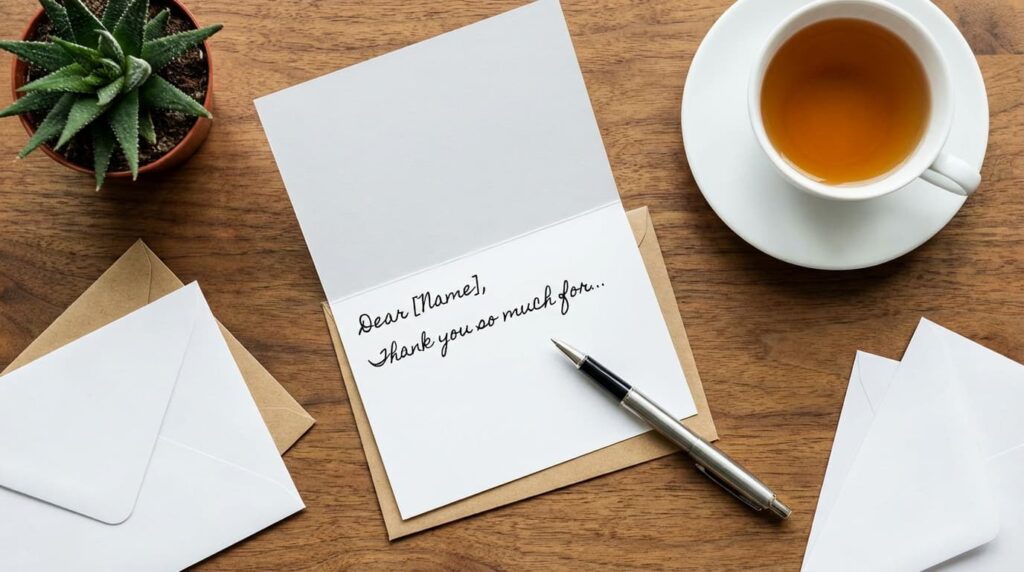 Dear [Name],
Thank you so much for...